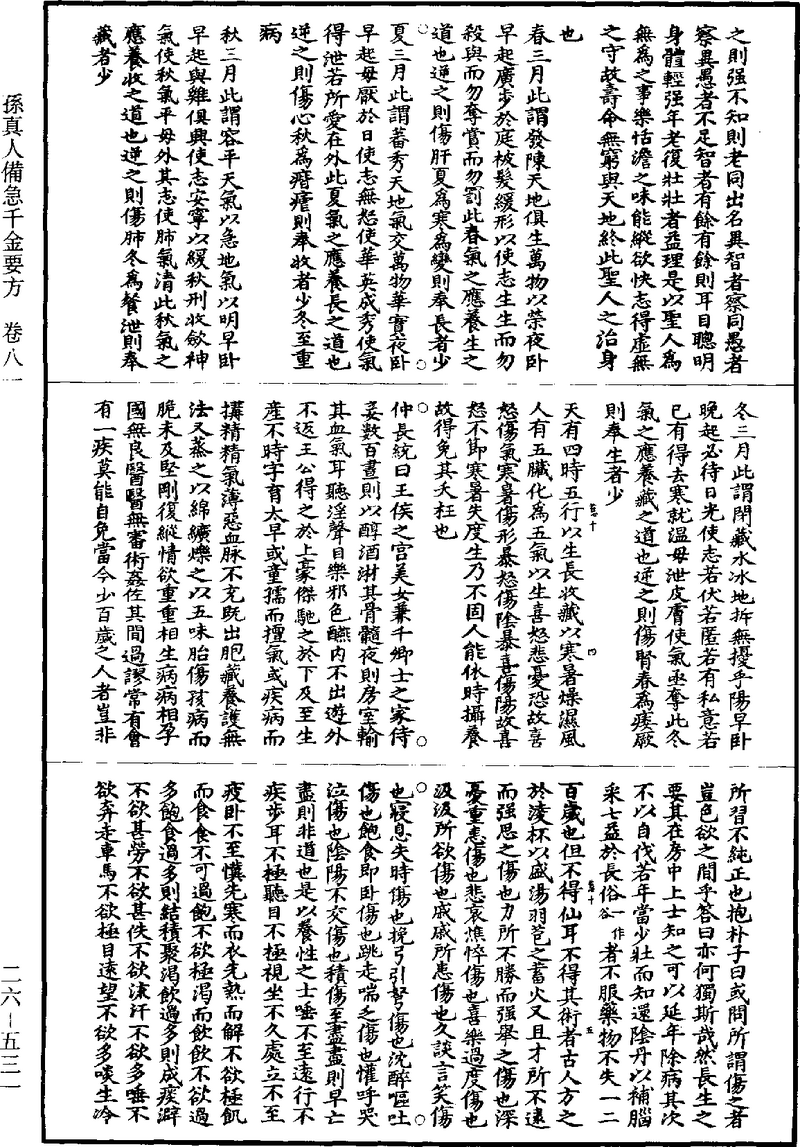 之則强不知則老同出名異智者察同愚者
察異愚者不足智者有餘有餘則耳目聰明
身體輕强年老復壯壯者益理是以聖人為
無為之事樂恬澹之味能縱欲快志得虛無
之守故壽命無窮與天地終此聖人之治身
也
春三月此謂發陳天地俱生萬物以榮夜卧
早起廣步於庭被髮緩形以使志生生而勿
殺與而勿奪賞而勿罰此春氣之應養生之
道也逆之則傷肝夏為寒為變則奉長者少
夏三月此謂蕃秀天地氣交萬物華實夜卧
早起毋厭於日使志無怒使華英成秀使氣
得泄若所愛在外此夏氣之應養長之道也
逆之則傷心秋為痎瘧則奉收者少冬至重
病
秋三月此謂容平天氣以急地氣以明早卧
早起與雞俱興使志安寧以緩秋刑收斂神
氣使秋氣平毋外其志使肺氣清此秋氣之
應養收之道也逆之則傷肺冬為飱泄則奉
藏者少
冬三月此謂閉藏水冰地拆無擾乎陽早卧
晚起必待日光使志若伏若匿若有私意若
已有得去寒就溫毋泄皮膚使氣亟奪此冬
氣之應養藏之道也逆之則傷腎春為痿厥
則奉生者少
天有四時五行以生長收藏以寒暑燥濕風
人有五臟化為五氣以生喜怒悲憂恐故喜
怒傷氣寒暑傷形暴怒傷陰暴喜傷陽故喜
怒不節寒暑失度生乃不固人能依時攝養
故得免其夭枉也
仲長統曰王侯之宫美女兼千卿士之家侍
妾數百晝則以醇酒淋其骨髓夜則房室輸
其血氣耳聽淫聲目樂邪色醼內不出遊外
不返王公得之於上豪傑馳之於下及至生
產不時字育太早或童孺而擅氣或疾病而
搆精精氣薄惡血脉不充既出胞藏養護無
法又蒸之以綿纊爍之以五味胎傷孩病而
脆未及堅剛復縱情欲重重相生病病相孕
國無良醫醫無審術姦佐其間過謬常有會
有一疾莫能自免當今少百歲之人者豈非
所習不純正也抱朴子曰或問所謂傷之者
豈色欲之間乎荅曰亦何獨斯哉然長生之
要其在房中上士知之可以延年除病其次
不以自伐若年當少壯而知還陰丹以補腦
采七益於長俗一作谷者不服藥物不失一二
百歲也但不得仙耳不得其術者古人方之
於凌杯以盛湯羽苞之蓄火又且才所不逮
而强思之傷也力所不勝而强舉之傷也深
憂重恚傷也悲哀憔悴傷也喜樂過度傷也
汲汲所欲傷也戚戚所患傷也久談言笑傷
也寢息失時傷也挽弓引弩傷也沈醉嘔吐
傷也飽食即卧傷也跳走喘乏傷也懽呼哭
泣傷也陰陽不交傷也積傷至盡盡則早亡
盡則非道也是以養性之士唾不至遠行不
疾步耳不極聽目不極視坐不久處立不至
疲卧不至懻先寒而衣先熱而解不欲極飢
而食食不可過飽不欲極渴而飲飲不欲過
多飽食過多則結積聚渴飲過多則成痰澼
不欲甚勞不欲甚佚不欲流汗不欲多唾不
欲奔走車馬不欲極目遠望不欲多啖生冷
孫真人備急千金要方 卷八一
二六－五三一